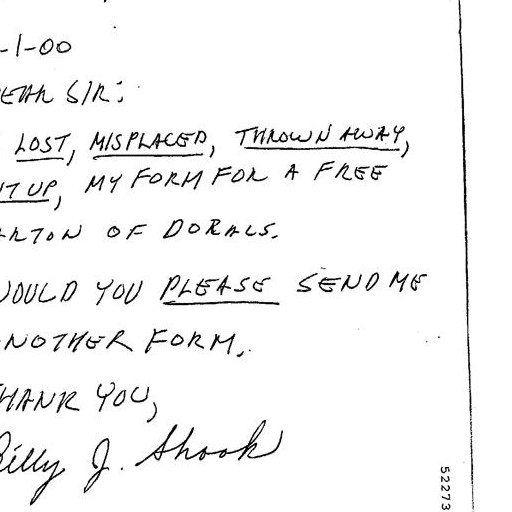 -1-00
EAR SIR:
LOST, MISPLACED, THROWN AWAY,
UP, MY FORM FOR A FREE
ARTON OF DORALS.
WOULD YOU PLEASE SEND ME
NOTHER FORM.
HANK YOU,
Billy J. Shook
52273